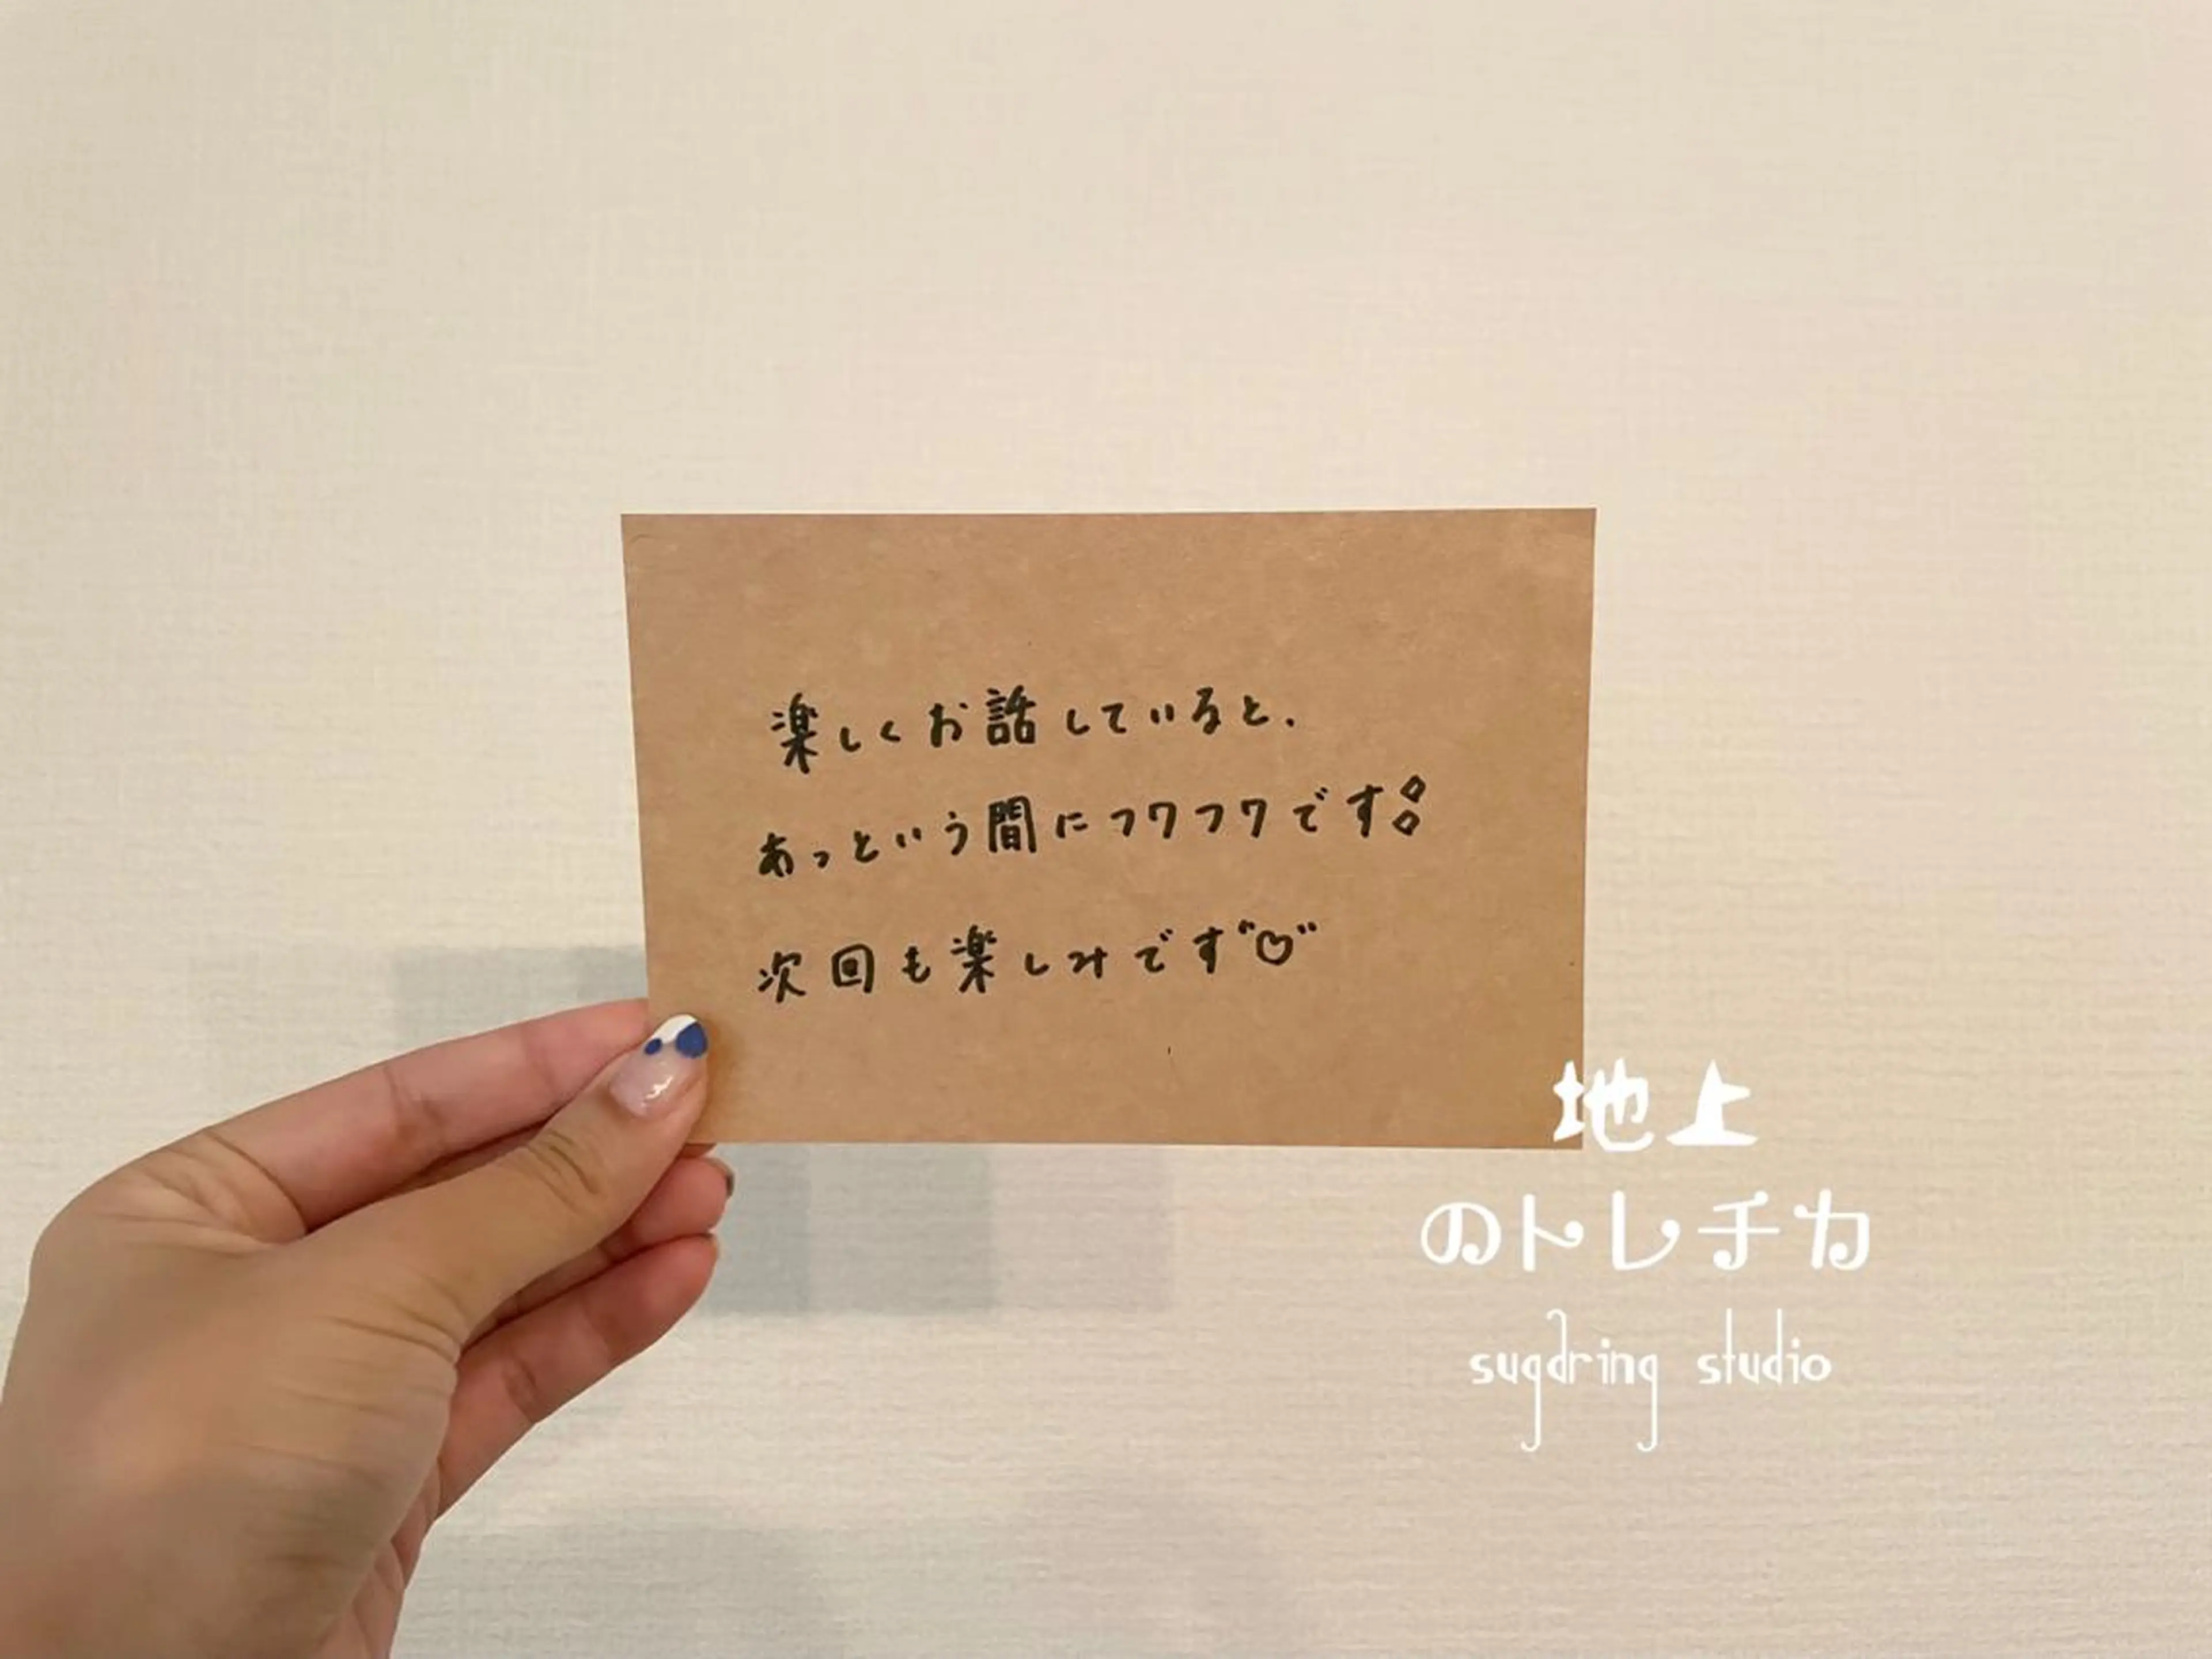 楽しくお話していると、
あっという間にフワフワです
次回も楽しみです"♡"
地上
のトレチカ
sugaring studio